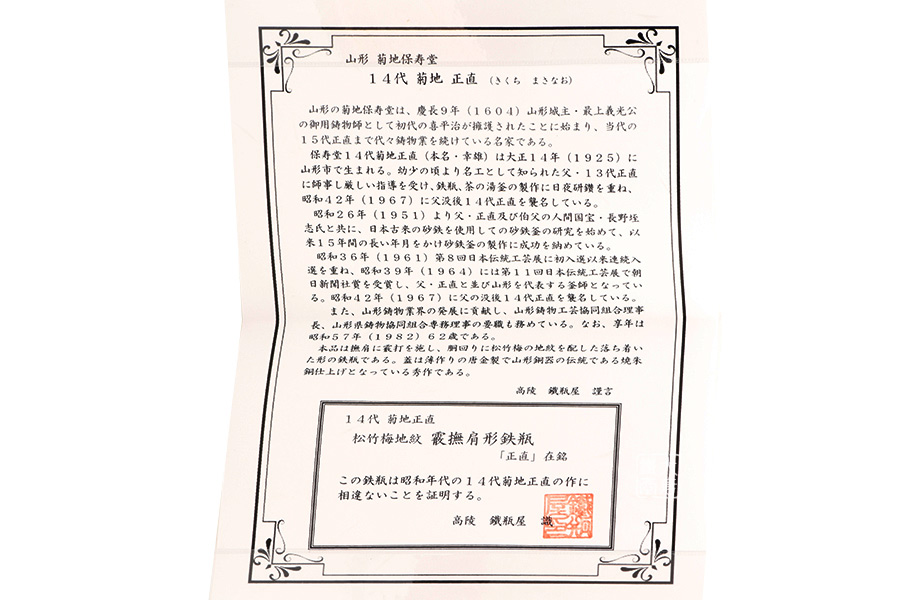 山形 菊地保寿堂
14代 菊地 正直 (きくち まさなお)
山形の菊地保寿堂は、慶長9年(1604)山形城主・最上義光公
の御用鋳物師として初代の喜平治が擁護されたことに始まり、当代の
15代正直まで代々鋳物業を続けている名家である。
保寿堂14代菊地正直(本名・幸雄)は大正14年(1925)に
山形市で生まれる。幼少の頃より名工として知られた父・13代正直
に師事し厳しい指導を受け、鉄瓶、茶の湯釜の製作に日夜研鑽を重ね、
昭和42年(1967)に父没後14代正直を襲名している。
昭和26年(1951)より父・正直及び伯父の人間国宝・長野垤
志氏と共に、日本古来の砂鉄を使用しての砂鉄釜の研究を始めて、以
来15年間の長い年月をかけ砂鉄釜の製作に成功を納めている。
昭和36年(1961)第8回日本伝統工芸展に初入選以来連続入
選を重ね、昭和39年(1964)には第11回日本伝統工芸展で朝
日新聞社賞を受賞し、父・正直と並び山形を代表する釜師となってい
る。昭和42年(1967)に父の没後14代正直を襲名している。
また、山形鋳物業界の発展に貢献し、山形鋳物工芸協同組合理事
長、山形県鋳物協同組合専務理事の要職も務めている。なお、享年は
昭和57年(1982)62歳である。
本品は撫肩に霰打を施し、胴回りに松竹梅の地紋を配した落ち着い
た形の鉄瓶である。蓋は薄作りの唐金製で山形銅器の伝統である焼朱
銅仕上げとなっている秀作である。
高陵 鐵瓶屋 謹言
14代 菊地正直
松竹梅地紋 霰撫肩形鉄瓶
「正直」在銘
この鉄瓶は昭和年代の14代菊地正直の作に
相違ないことを証明する。
高陵 鐵瓶屋 識